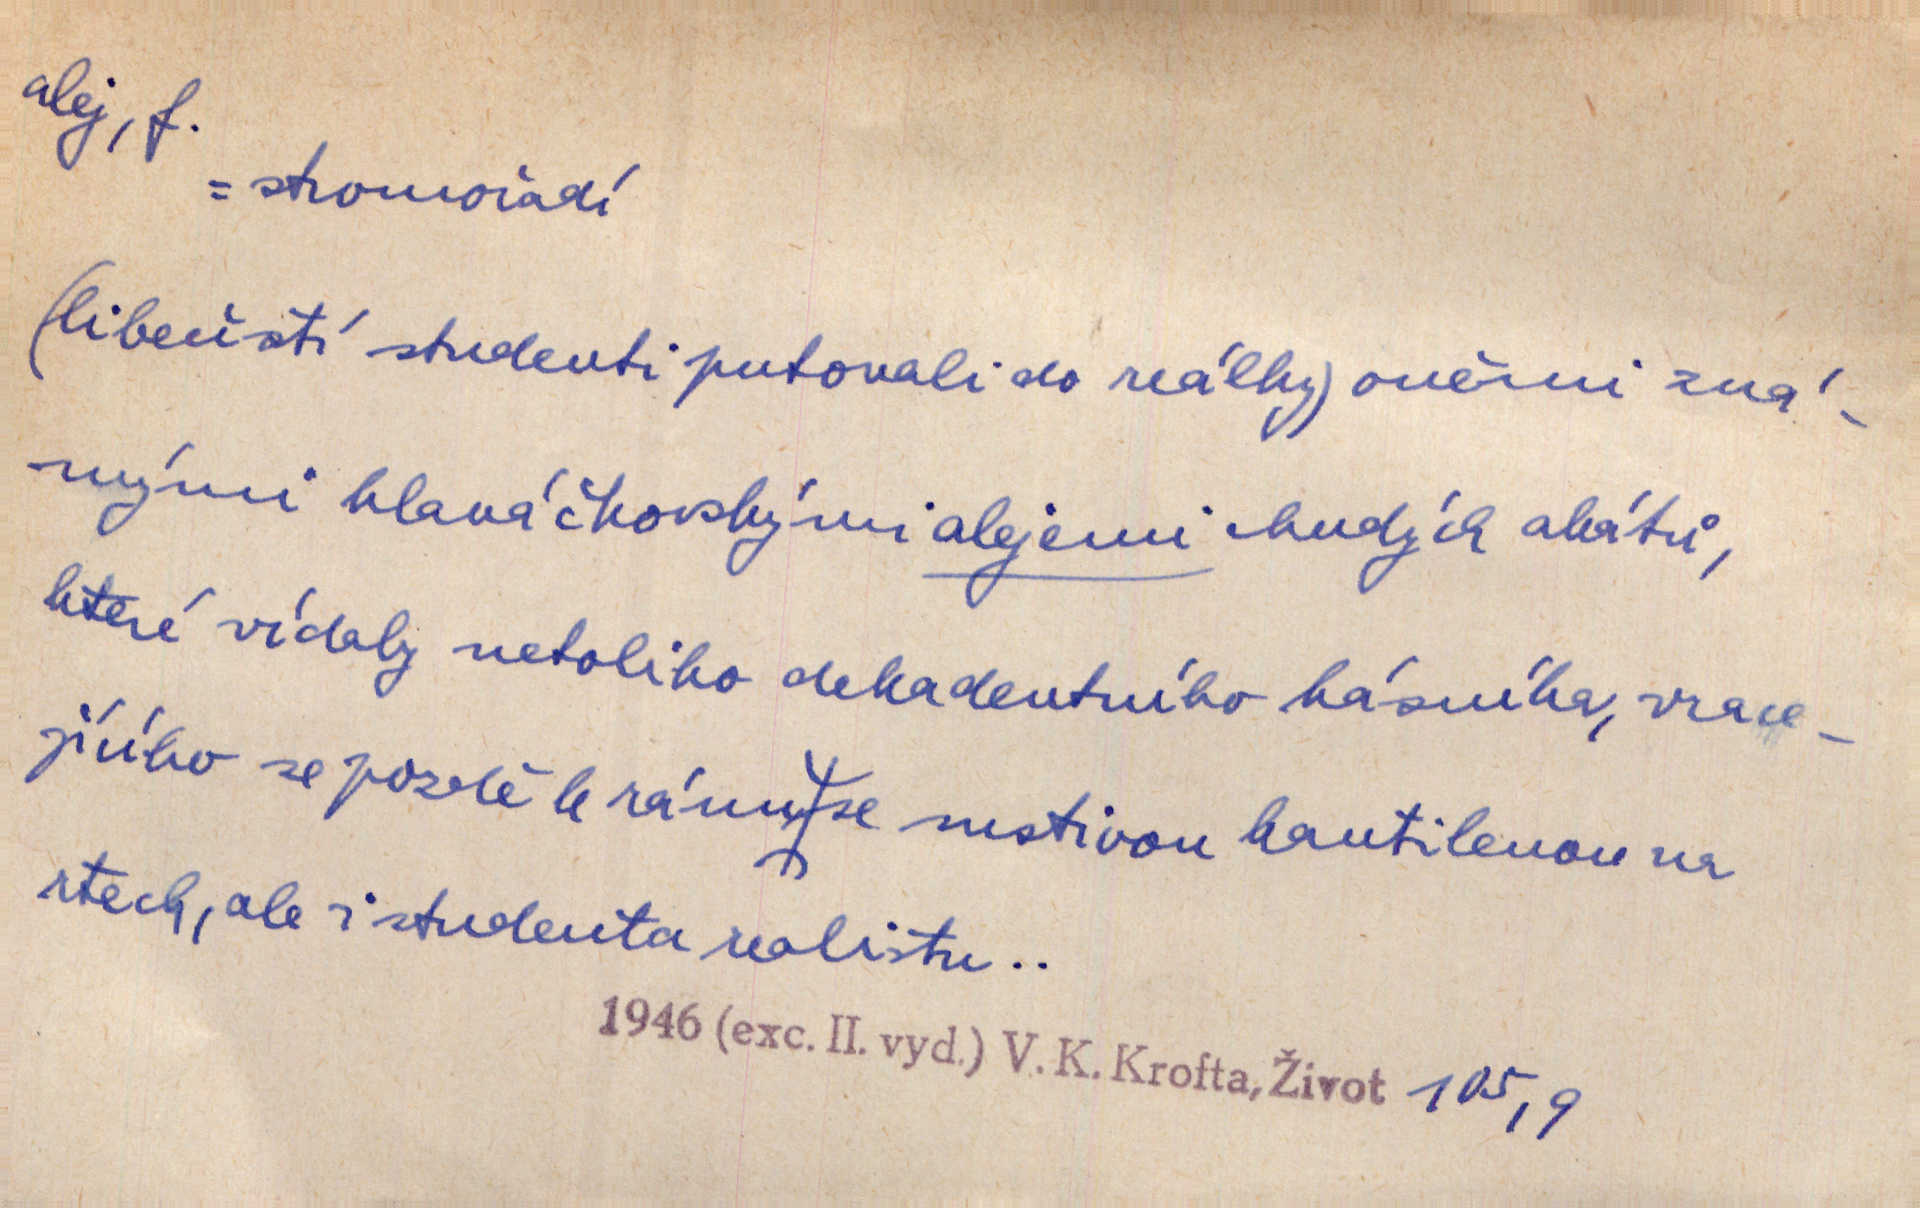 alej, f.
= stromořadí
(libeňští studenti putovali do reálky) oněmi zná-
mými hlaváčkovskými alejemi chudých akátů,
které vídaly netoliko dekadentního básníka, vrace-
jícího se pozdě k ránu se mstivou kantilenou na
rtech, ale i studenta realistu..
1946 (exc. II. vyd.) V. K. Krofta, Život 105,9